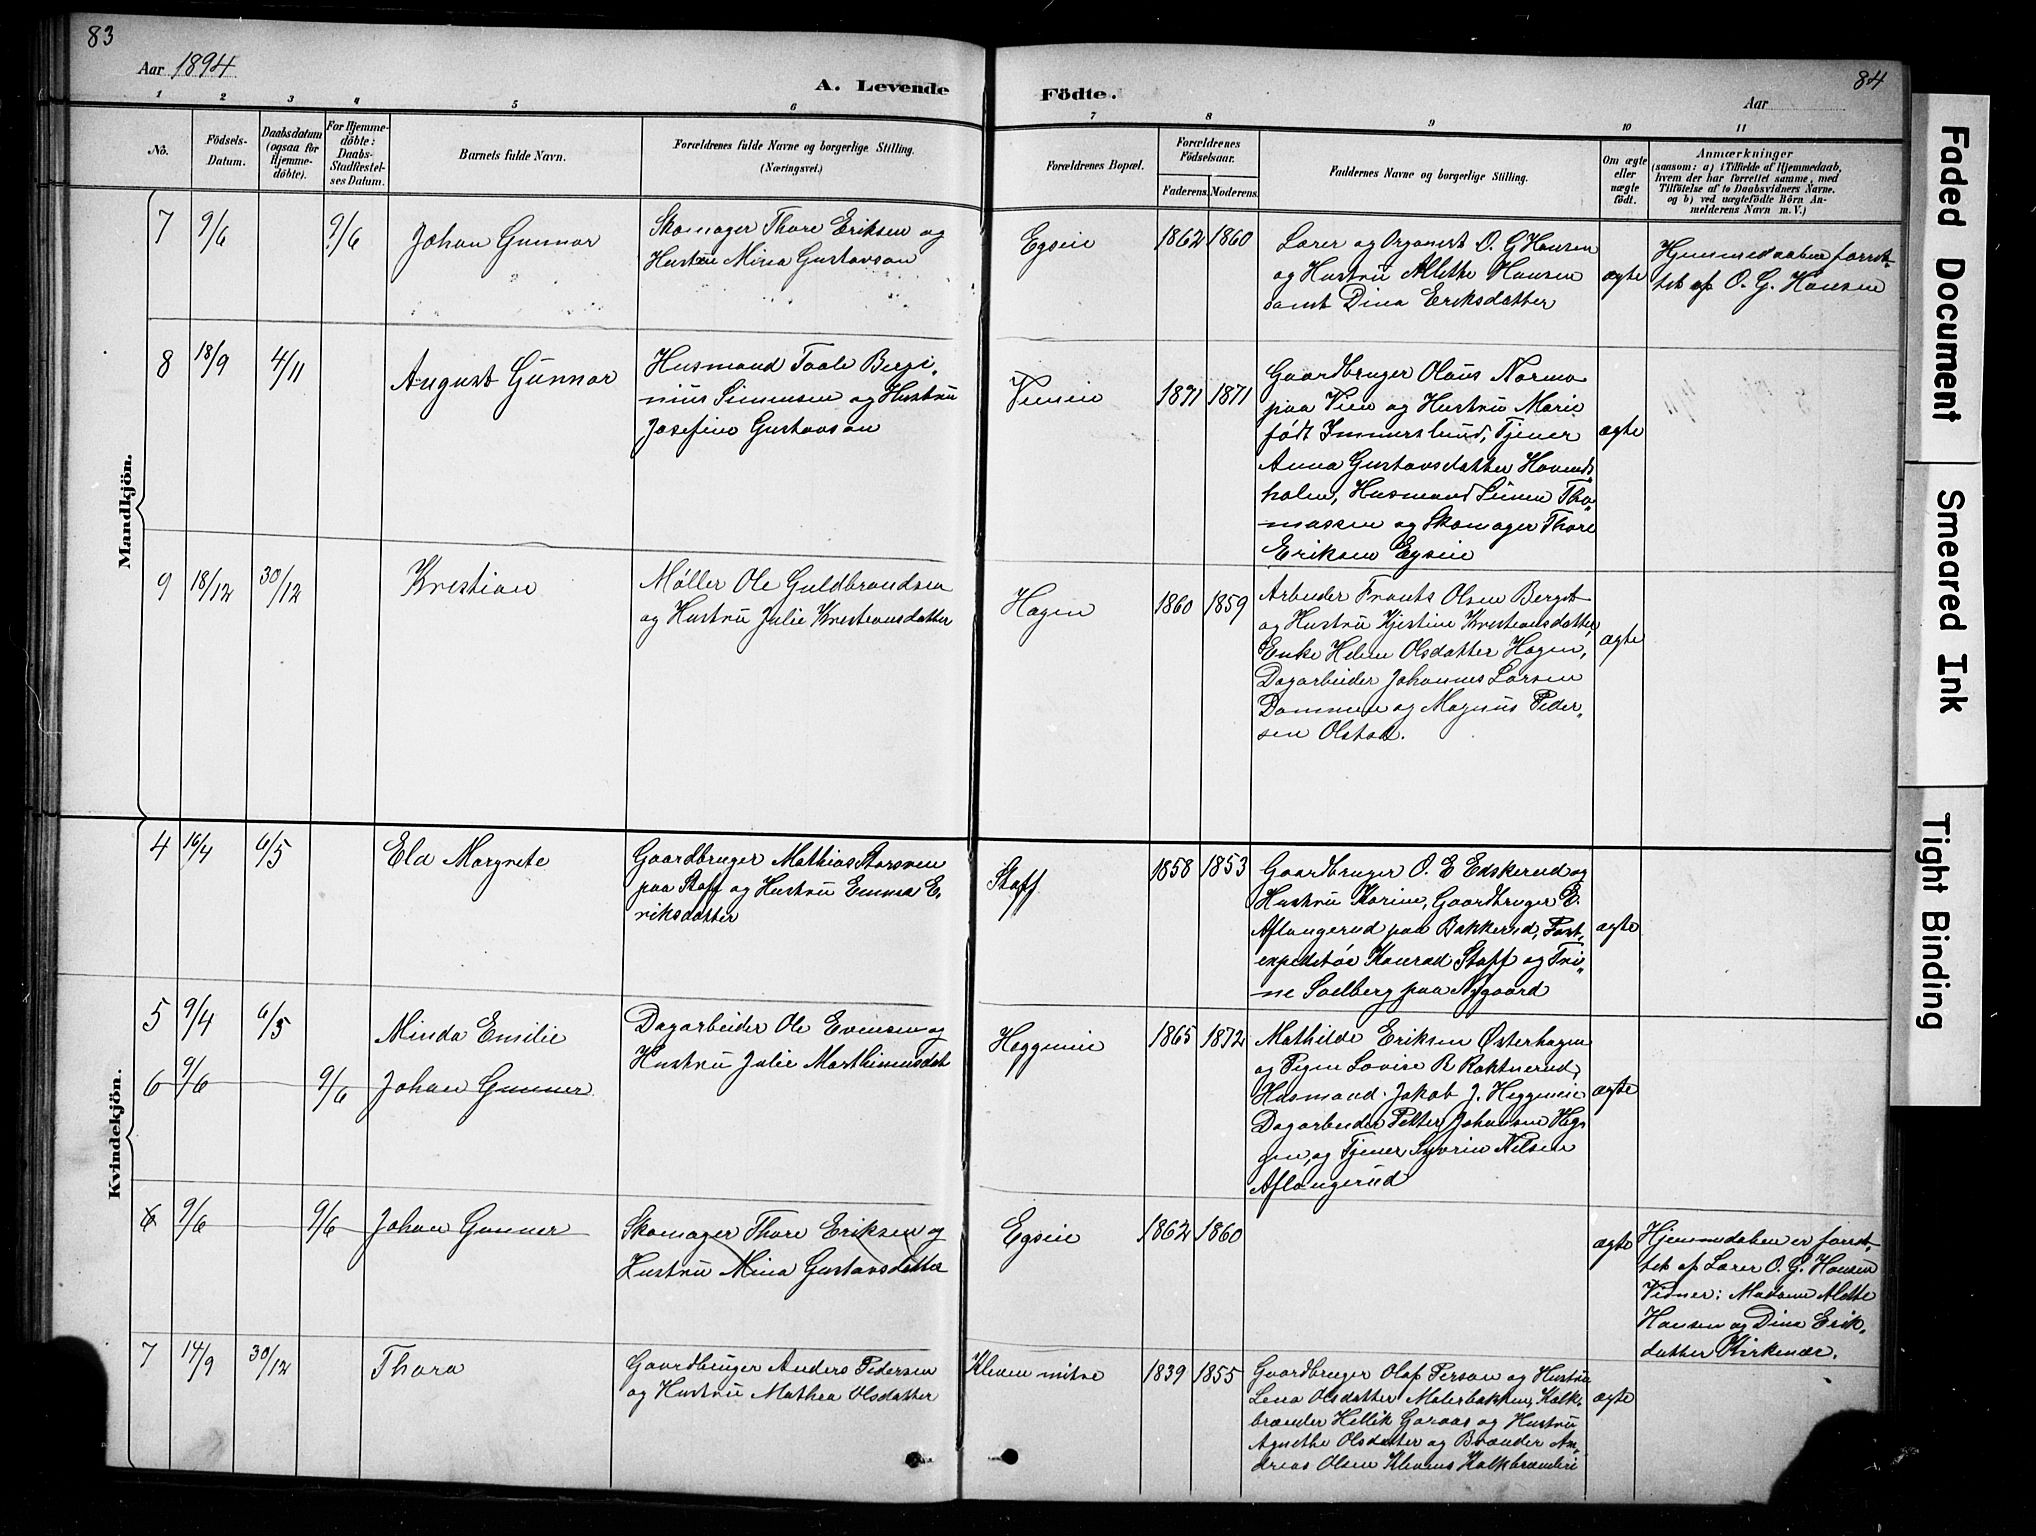 83
Aar 1894
A. Levende
1 2 3 4 5 6
No.
Födsels-
Datum.
Daabsdatum
(ogsaa for
Hjemme-
döbte).
For Hjemme-
döbte:
Daabs-
Stadfæstel-
ses Datum.
Barnets fulde Navn.
Forældrenes fulde Navne og borgerlige Stilling.
(Næringsvei.)
Mandkjön.
7 9/6 9/6 Johan Gunnar
Skomager Thore Eriksen og
Hustru Mina Gustavson
8 18/9 4/11 August Gunnar
Husmand Taale Bergi-
nius Simensen og Hustru
Josefine Gustavson
9 18/12 30/12 Kristian
Møller Ole Guldbrandsen
og Hustru Julie Kristiansdatter
Kvindekjön.
4 16/4 6/5 Ela Margrete
Gaardbruger Mathias Thorsven
paa Staff og Hustru Emma E-
riksdatter
5 9/4 6/5 Minda Emilie
Dagarbeider Ole Evensen og
Hustru Julie Marthinusdat
6 9/6 9/6 Johan Gunner
6 9/6 9/6 Johan Gunner
Skomager Thore Eriksen og
Hustru Mina Gustavsdatter
7 14/9 30/12 Thora
Gaardbruger Anders Pedersen
og Hustru Mathea Olsdatter
84
Födte.
Aar
7 8 9 10 11
Forældrenes Bopæl.
Forældrenes
Födselsaar.
Faderens. Moderens.
Faddernes Navne og borgerlige Stilling.
Om ægte
eller
uægte
födt.
Anmærkninger
(saasom: a) i Tilfælde af Hjemmedaab,
hvem der har forrettet samme, med
Tilföielse af to Daabsvidners Navne,
og b) ved uægtefödte Börn An-
melderens Navn m. V.)
Egseie 1862 1860
Lærer og Organist O. G Hansen
og Hustru Alethe Hansen
samt Dina Eriksdatter
ægte
Hjemmedaaben forret-
tet af O. G. Hansen
Vieneie 1871 1871
Gaardbruger Olaus Narmo
paa Vien og Hustru Marie
født Immerslund, Tjener
Anna Gustavsdatter Hovinds-
holm, Husmand Simen Tho-
massen og Skomager Thore
Eriksen Egseie
ægte
Hagen 1860 1859
Arbeider Frants Olsen Berget
og Hustru Kjestine Kristiansdatter,
Enke Helene Olsdatter Hagen,
Dagarbeider Johannes Larsen
Dammen og Magnus Peder-
sen Olstad.
ægte
Staff 1858 1853
Gaardbruger O. E Ekskerud og
Hustru Karine, Gaardbruger E.
Aflangerud paa Bakkerud, Post-
expeditør Konrad Staff og Tri-
ne Solberg paa Nygaard
ægte
Heggeneie 1865 1872
Mathilde Eriksen Østerhagen
og Pigen Lovise B Roktnerud,
Husmand Jakob J. Heggeneie
Dagarbeider Petter Johansen Heg-
gen, og Tjener Syverin Nilsen
Aflangerud
ægte
Egseie 1862 1860
ægte
Hjemmedaben er forret-
tet af Lærer O. G. Hansen
Vidner: Madame Alethe
Hansen og Dina Erik-
datter Kirkenær.
Kleven mitre 1839 1855
Gaardbruger Olaf Person og Hustru
Lena Olsdatter Malerbakken, Kalk-
brænder Hellik Garaas og Hustru
Agnethe Olsdatter og Brænder An-
dreas Olsen Klevens Kalkbrænderi
ægte
Faded Document
Smeared Ink
Tight Binding